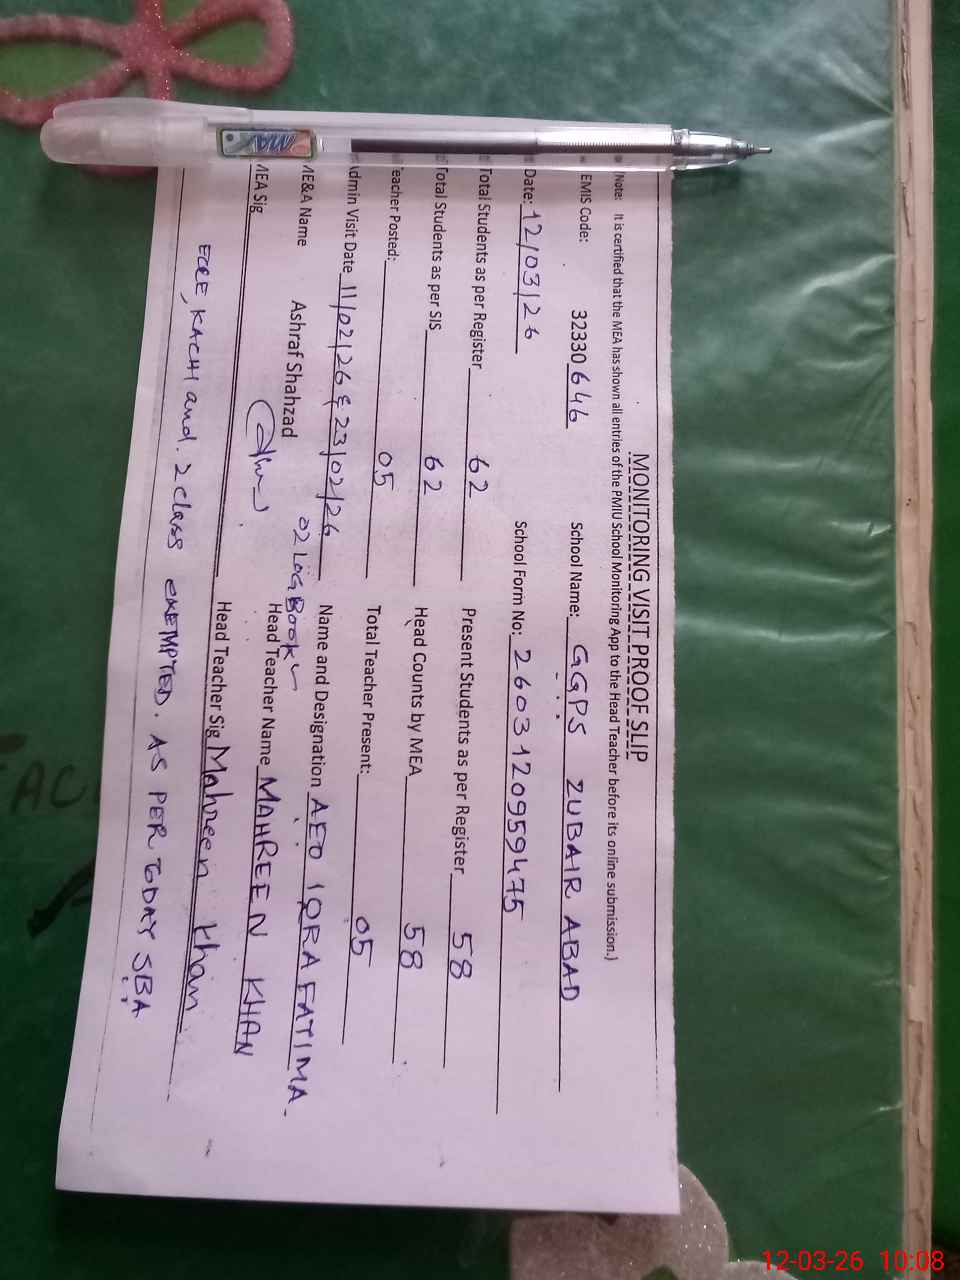 MONITORING VISIT PROOF SLIP
Note: It is certified that the MEA has shown all entries of the PMIU School Monitoring App to the Head Teacher before its online submission.)
EMIS Code: 32330646 School Name: GGPS ZUBAIR ABAD
Date: 12/03/26 School Form No: 260312095947 5
Total Students as per Register 62 Present Students as per Register 58
Total Students as per SIS 62 Head Counts by MEA 58
Teacher Posted: 05 Total Teacher Present: 05
Admin Visit Date 11/02/26 & 23/02/26 Name and Designation AEO IQRA FATIMA.
02 LOG BOOK
ME&A Name Ashraf Shahzad Head Teacher Name MAHREEN KHAN
MEA Sig Head Teacher Sig Mahreen Khan
ECCE, KACHI and. 2 class EXEMPTED. AS PER TODAY SBA
12-03-26 10:08